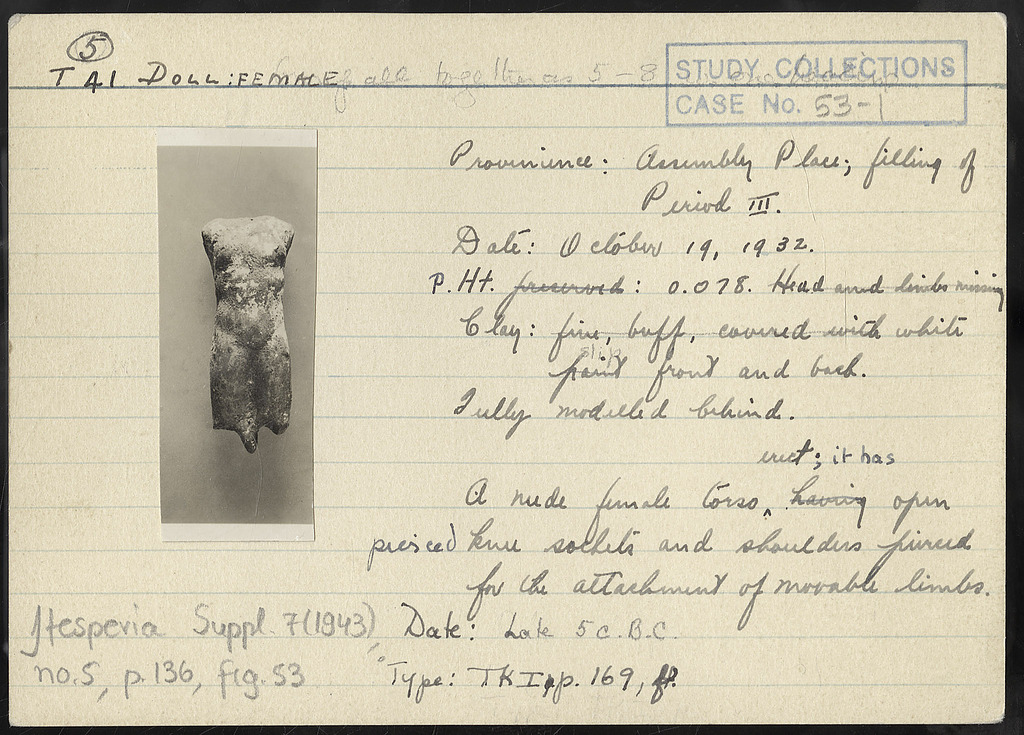 5
T 41 DOLL: FEMALE of all together as 5 – 8
STUDY COLLECTIONS
CASE No. 53-1
Provinience: Assembly Place; filling of
Period III.
Date: October 19, 1932.
P. Ht. preserved: 0.078. Head and limbs missing
Clay: fine, buff, covered with white
slip
paint front and back.
Fully modelled behind.
erect; it has
A nude female torso, having open
pierced knee sockets and shoulders pierced
for the attachment of movable limbs.
Hesperia Suppl. 7 (1943), Date: Late 5 c. B.C.
no. 5, p. 136, fig. 53 Type: TK I, p. 169, ff.